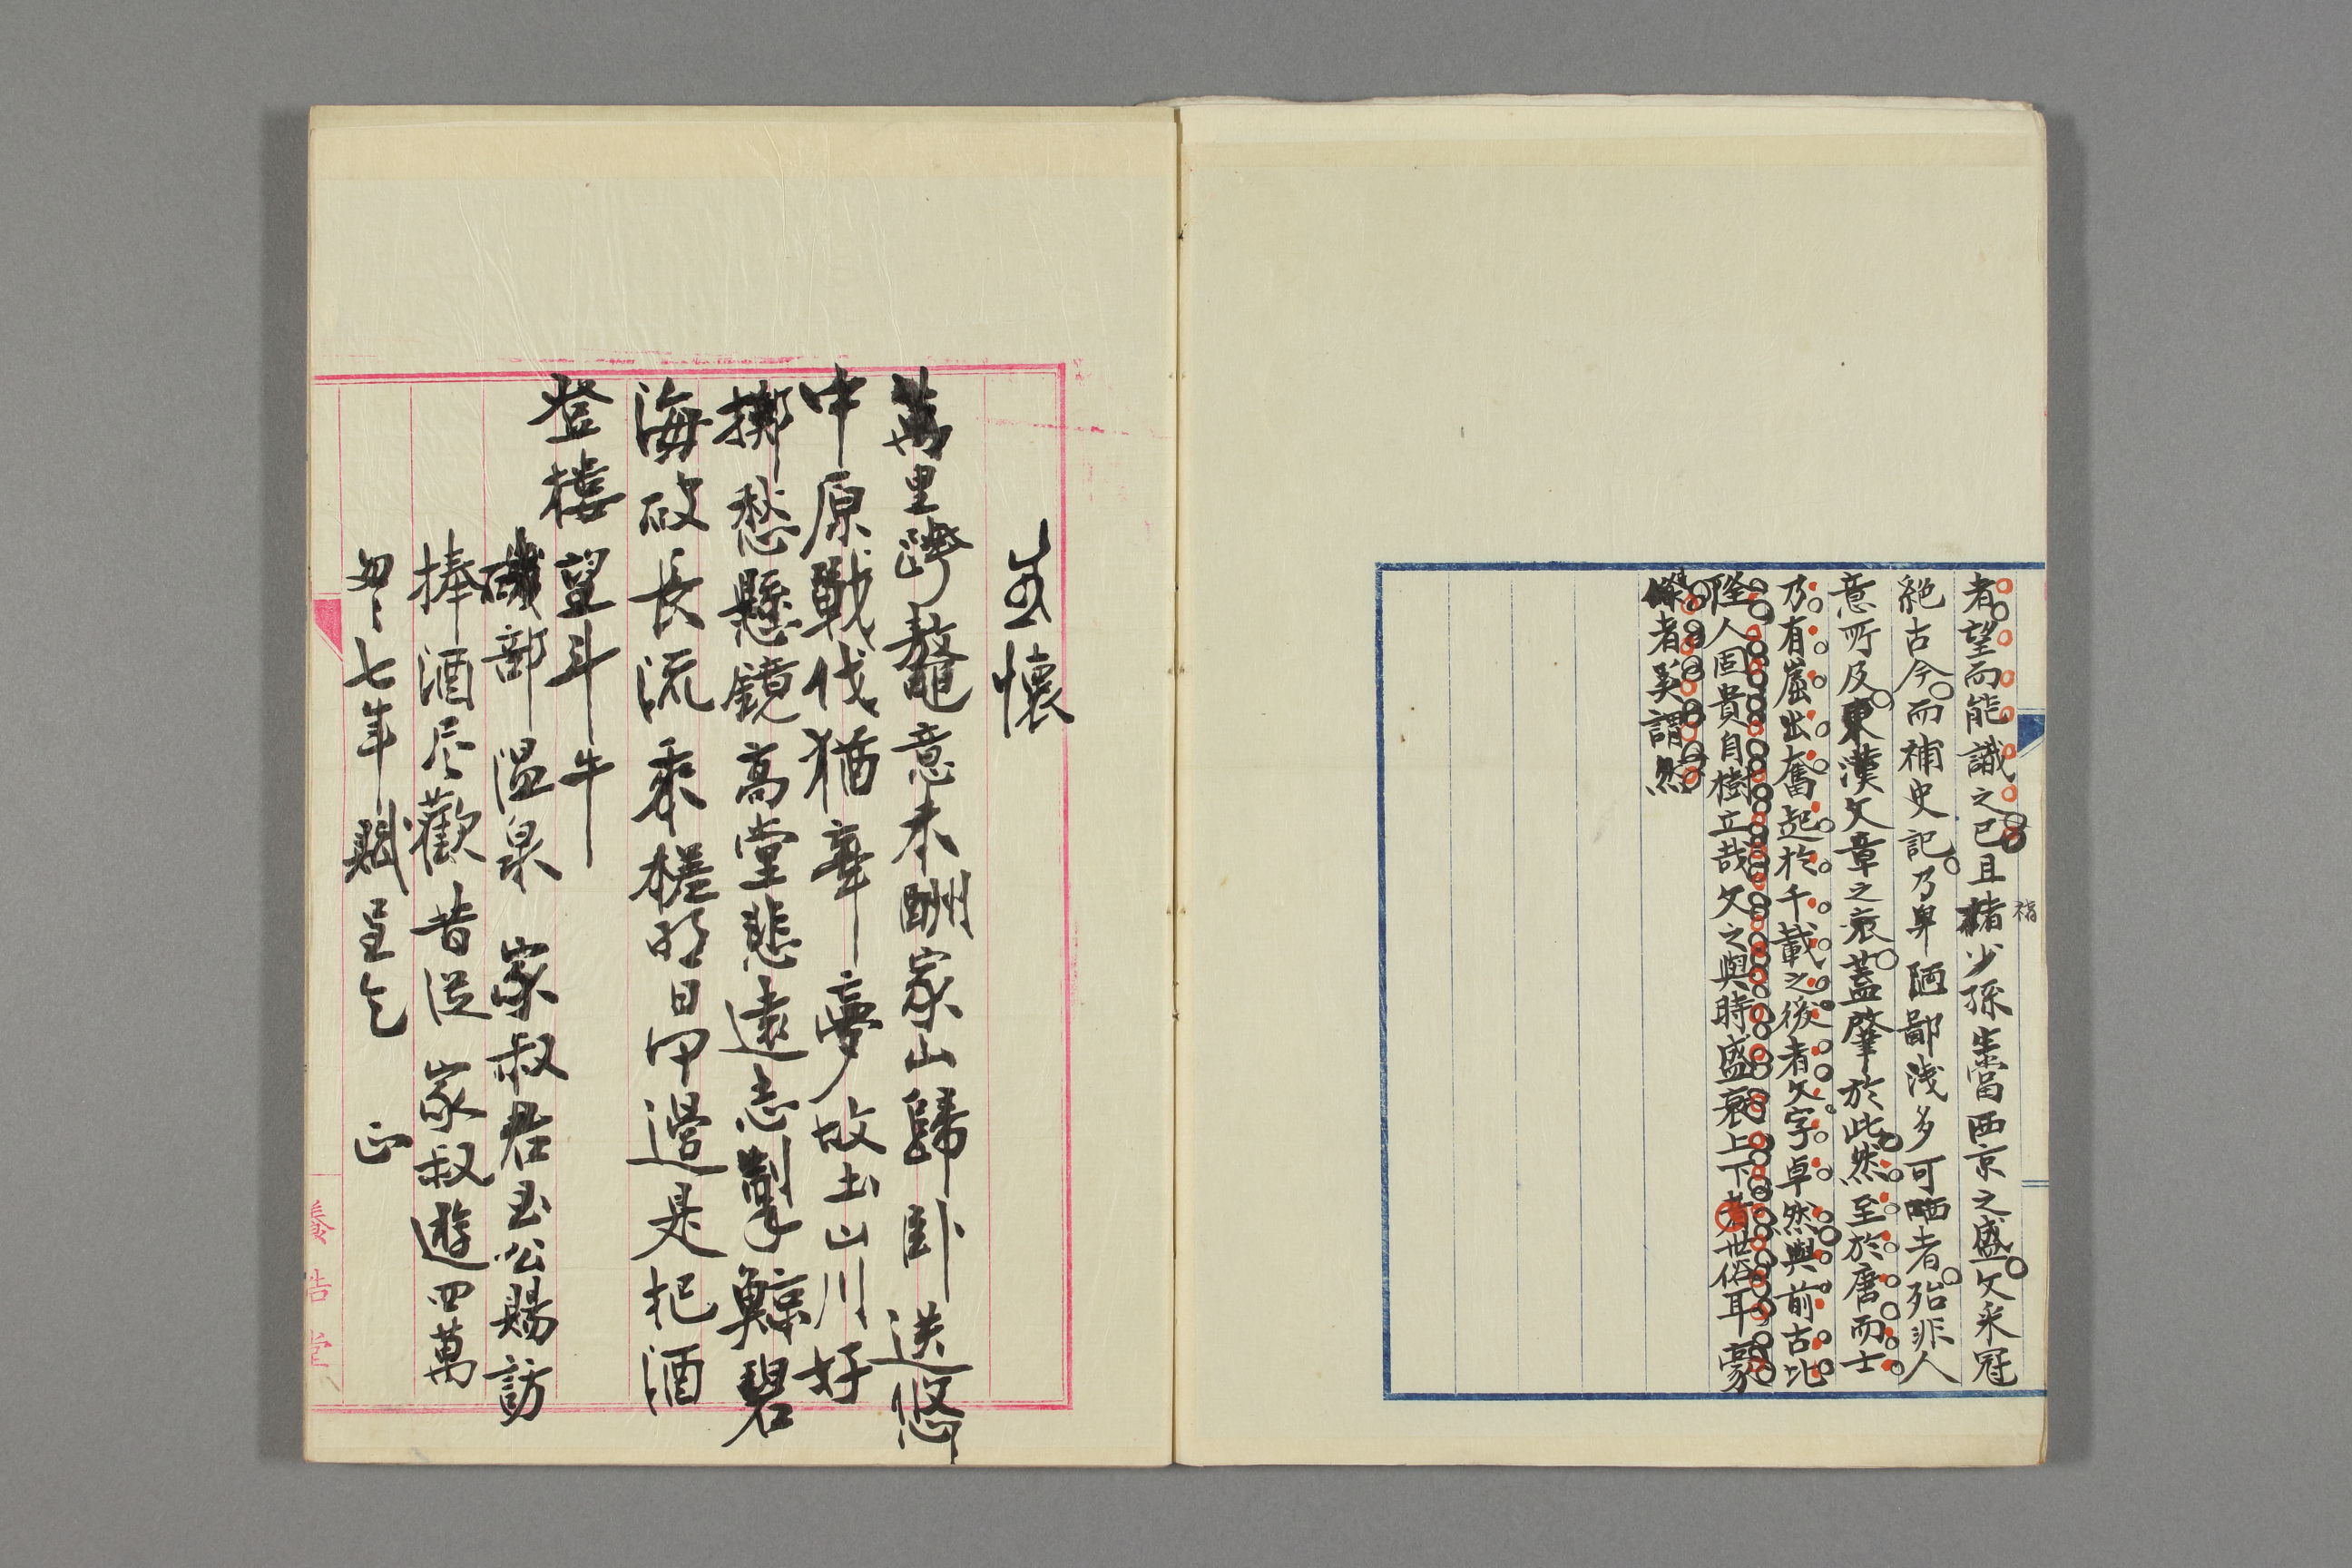 者望而能識之已且楮少孫生當西京之盛文采冠
楮
絕古今而補史記乃卑陋鄙淺多可哂者殆非人
意所及東漢文章之衰蓋肇於此然至於唐而士
乃有崛出奮起於千載之後者文字卓然與前古比
隆人固貴自樹立哉文之與時盛衰上下者世俗耳豪
傑者奚謂然
懷
萬里跨鼇意未酬家山歸臥送悠
中原戰伐猶牽夢故土山川好
擲愁懸鏡高堂悲遠志掣鯨碧
海破長流乘槎明日何邊是把酒
登樓望斗牛
磯部溫泉 家叔君玉公賜訪
捧酒尽歡昔從 家叔遊四萬
匆々七年 賦呈乞 正
養浩堂